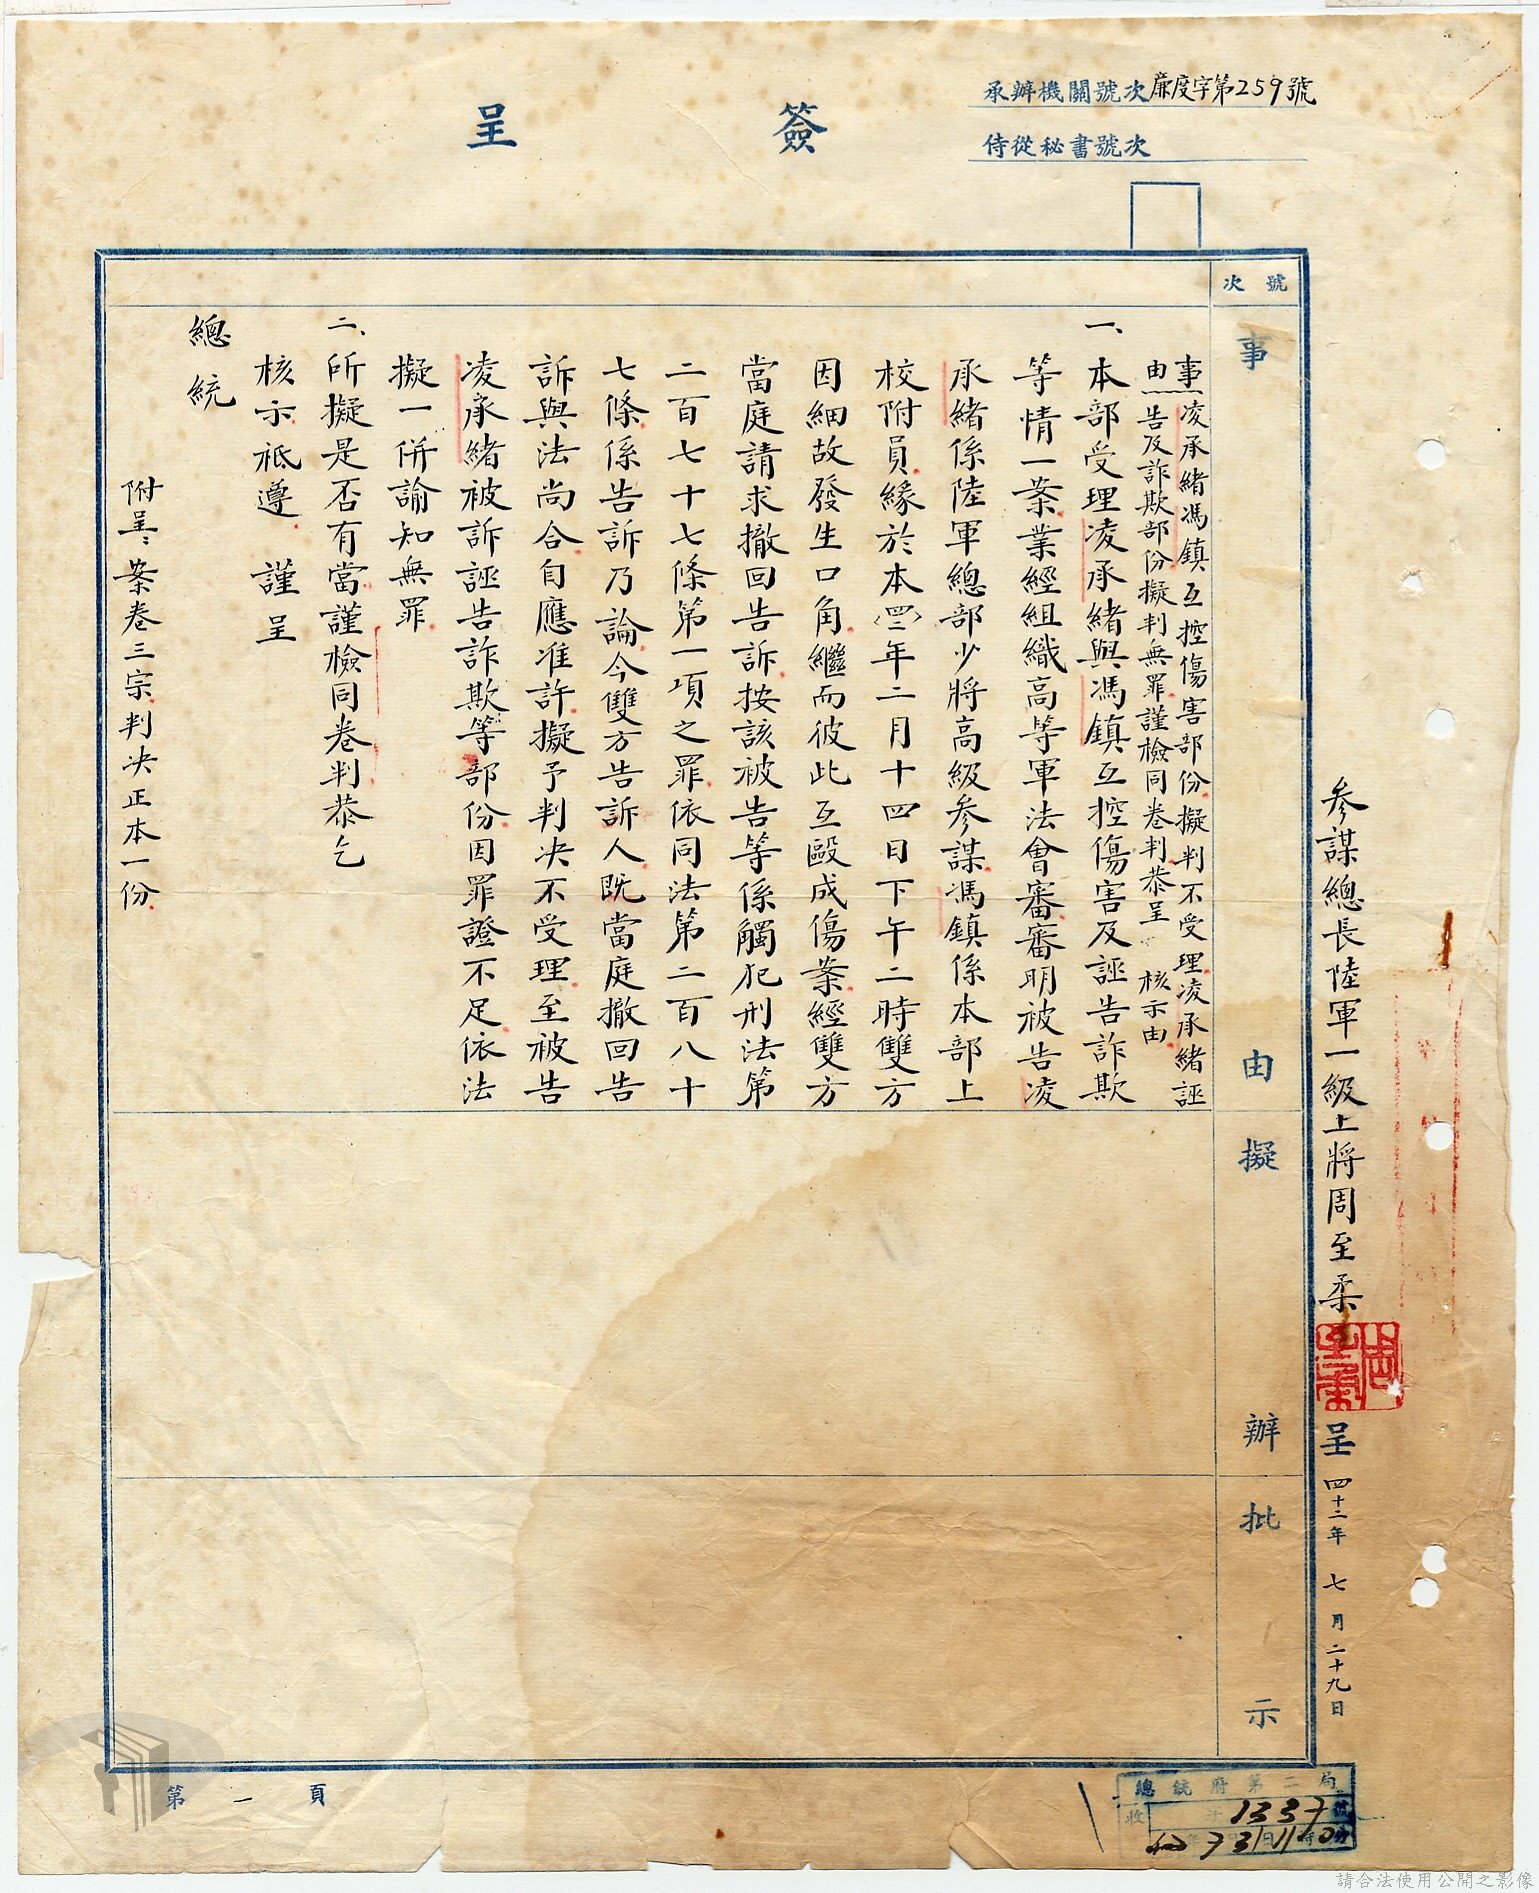 承辦機關號次廉度字第259號
侍從秘書號次
簽呈
參謀總長陸軍一級上將周至柔
周至柔
呈
四十三年七月二十九日
號次
事由
擬辦
批示
事由
凌承緒馮鎮互控傷害部份擬判不受理凌承緒誣
告及詐欺部份擬判無罪謹檢同卷判恭呈 核示由
一、本部受理凌承緒與馮鎮互控傷害及誣告詐欺
等情一案業經組織高等軍法會審審明被告凌
承緒係陸軍總部少將高級參謀馮鎮係本部上
校附員緣於本年二月十四日下午二時雙方
因細故發生口角繼而彼此互毆成傷案經雙方
當庭請求撤回告訴按該被告等係觸犯刑法第
二百七十七條第一項之罪依同法第二百八十
七條係告訴乃論今雙方告訴人既當庭撤回告
訴與法尚合自應准許擬予判决不受理至被告
凌承緒被訴誣告詐欺等部份因罪證不足依法
擬一併諭知無罪
二、所擬是否有當謹檢同卷判恭乞
核示祇遵 謹呈
總統
附呈:案卷三宗判决正本一份
第一頁
總統府第二局
收 字 1337 號
請合法使用公開之影像